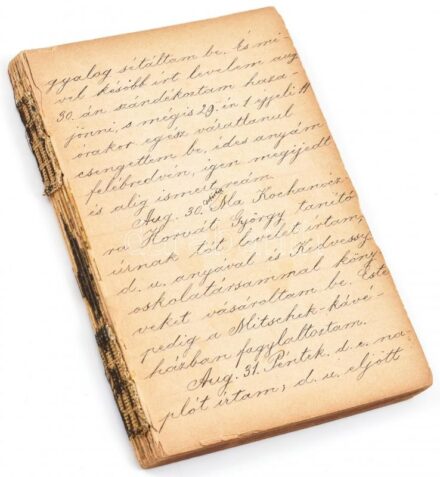 gyalog sétáltam be. És mi-
vel később írt levelem aug.
30.-án szándékoztam haza-
jönni, s mégis 29.-én éjjeli 11
órakor egész váratlanul
csengettem be, édes anyám
felébredvén, igen megijedt
és alig ismert reám.
Aug. 30. Ma Kochanócz-
ra Horvát György tanító
úrnak tót levelet írtam,
d. u. anyával és Kedvessy
oskolatársammal köny-
veket vásároltam be. Este
pedig a Mitschek-kávé-
házban fagylaltoztam.
Aug. 31. Péntek. d. e. na-
plót írtam; d. u. eljött